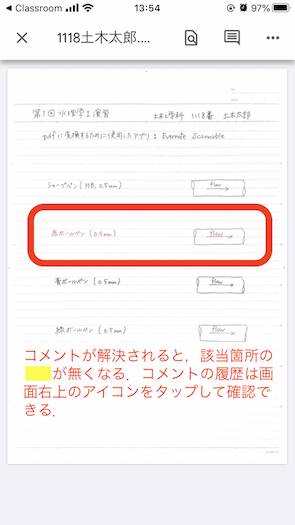 Classroom 13:54 97%
1118土木太郎....
第1回水理学I演習 土木工学科 1118番 土木太郎
pdfに変換するために使用したアプリ : Evernote Scannable
シャープペン (HB, 0.5mm) flow
赤ボールペン (0.5mm) flow
青ボールペン (0.5mm) flow
緑ボールペン (0.5mm) flow
コメントが解決されると，該当箇所の
が無くなる．コメントの履歴は画
面右上のアイコンをタップして確認で
きる．